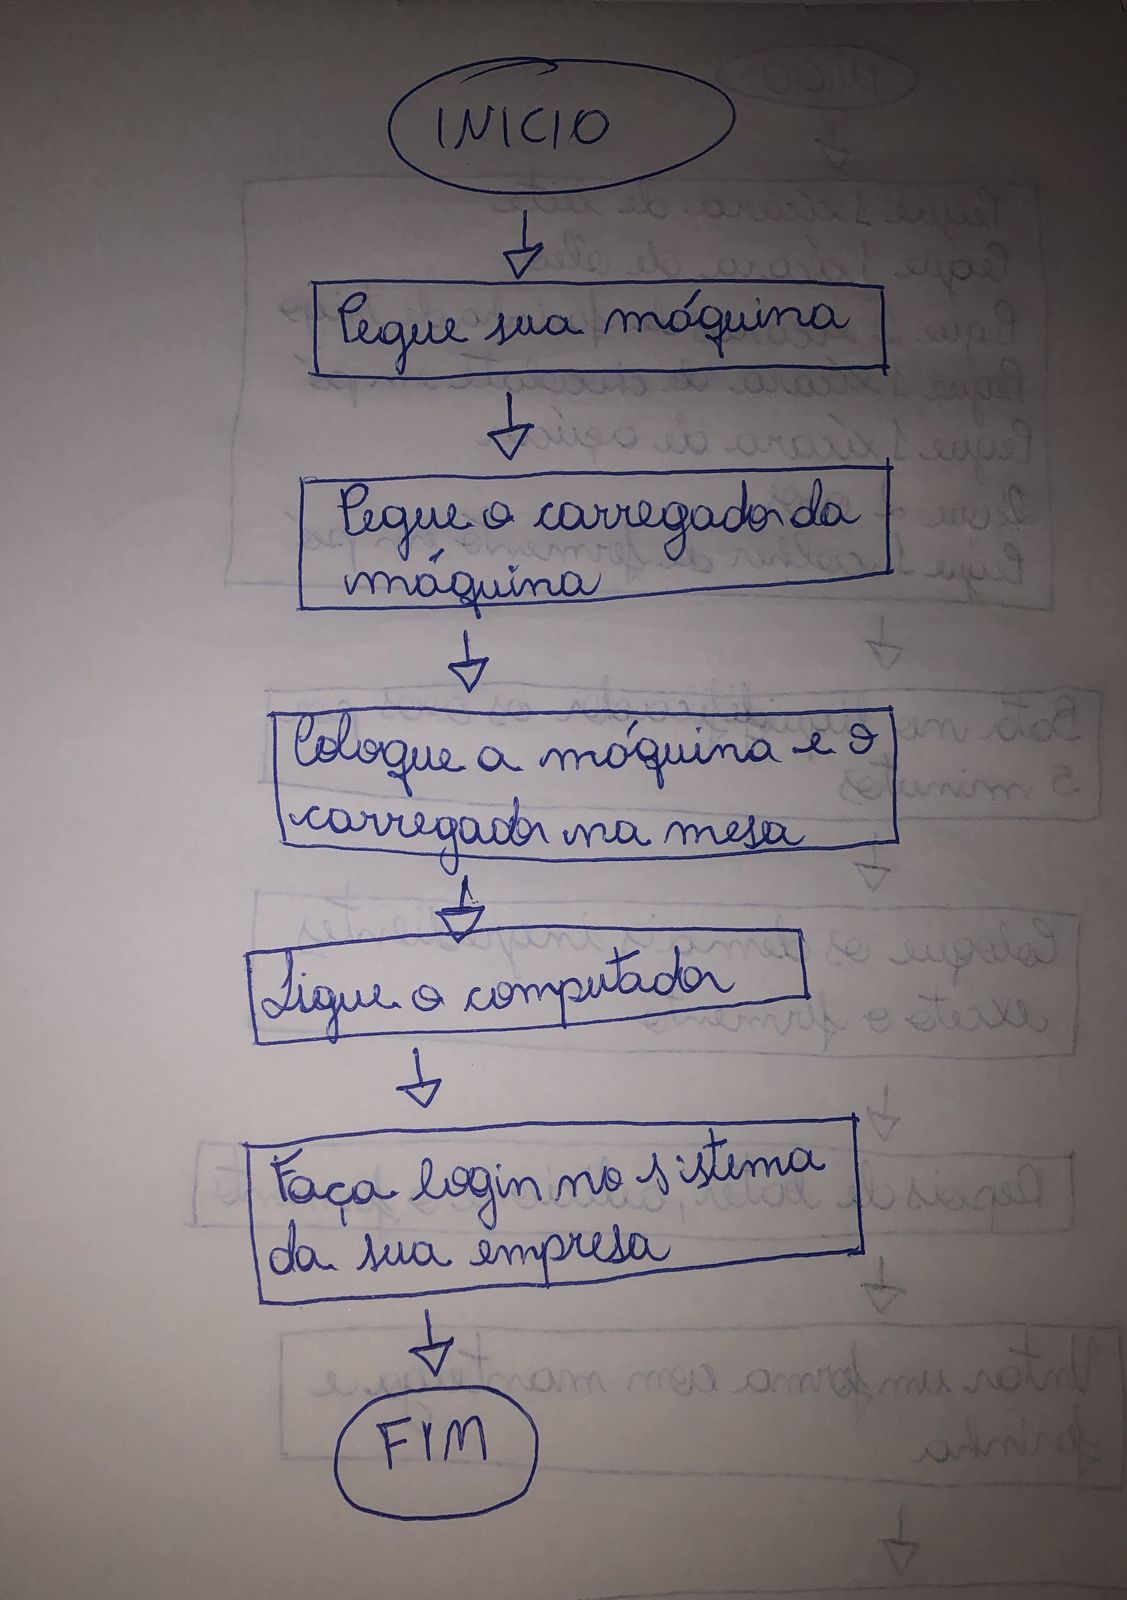 INICIO
Pegue sua máquina
Pegue o carregador da
máquina
Coloque a máquina e o
carregador na mesa
Ligue o computador
Faça login no sistema
da sua empresa
FIM